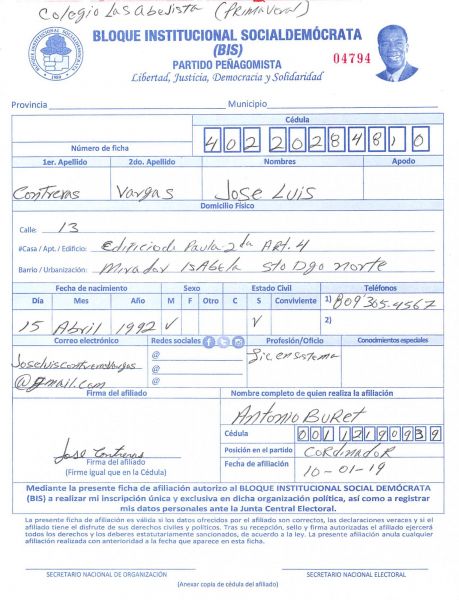 Colegio Las Abejista (Primaveral)
BLOQUE INSTITUCIONAL SOCIALDEMÓCRATA
(BIS)
PARTIDO PEÑAGOMISTA
04794
Libertad, Justicia, Democracia y Solidaridad
BLOQUE INSTITUCIONAL SOCIALDEMOCRATA
Provincia Municipio
Cédula
Número de ficha 402 2028481 0
1er. Apellido 2do. Apellido Nombres Apodo
Contreras Vargas Jose Luis
Domicilio Físico
Calle: 13
#Casa / Apt. / Edificio: Edificio de Paula 2da Art. 4
Barrio / Urbanización: Mirador Isabela Sto Dgo Norte
Fecha de nacimiento Sexo Estado Civil Teléfonos
Día Mes Año M F Otro C S Conviviente 1) 809 305-4567
15 Abril 1992 V V 2)
Correo electrónico Redes sociales Profesión/Oficio Conocimientos especiales
Joseluiscontrerasvargas @ Lic en sistema
@gmail.com @
@
Firma del afiliado Nombre completo de quien realiza la afiliación
Antonio Buret
Cédula 001 1219093 9
Jose Contreras Posición en el partido CORDINADOR
Firma del afiliado Fecha de afiliación 10-01-19
(Firme igual que en la Cédula)
Mediante la presente ficha de afiliación autorizo al BLOQUE INSTITUCIONAL SOCIAL DEMÓCRATA
(BIS) a realizar mi inscripción única y exclusiva en dicha organización política, así como a registrar
mis datos personales ante la Junta Central Electoral.
La presente ficha de afiliación es válida si los datos ofrecidos por el afiliado son correctos, las declaraciones veraces y si el afiliado
tiene el disfrute de sus derechos civiles y políticos. Tras su recepción, sello y firma autorizada el afiliado ejercerá
todos los derechos y los deberes estatutariamente sancionados, de acuerdo a la ley. La presente afiliación anula cualquier
afiliación realizada con anterioridad a la fecha que aparece en esta ficha.
SECRETARIO NACIONAL DE ORGANIZACIÓN SECRETARIO NACIONAL ELECTORAL
(Anexar copia de cédula del afiliado)